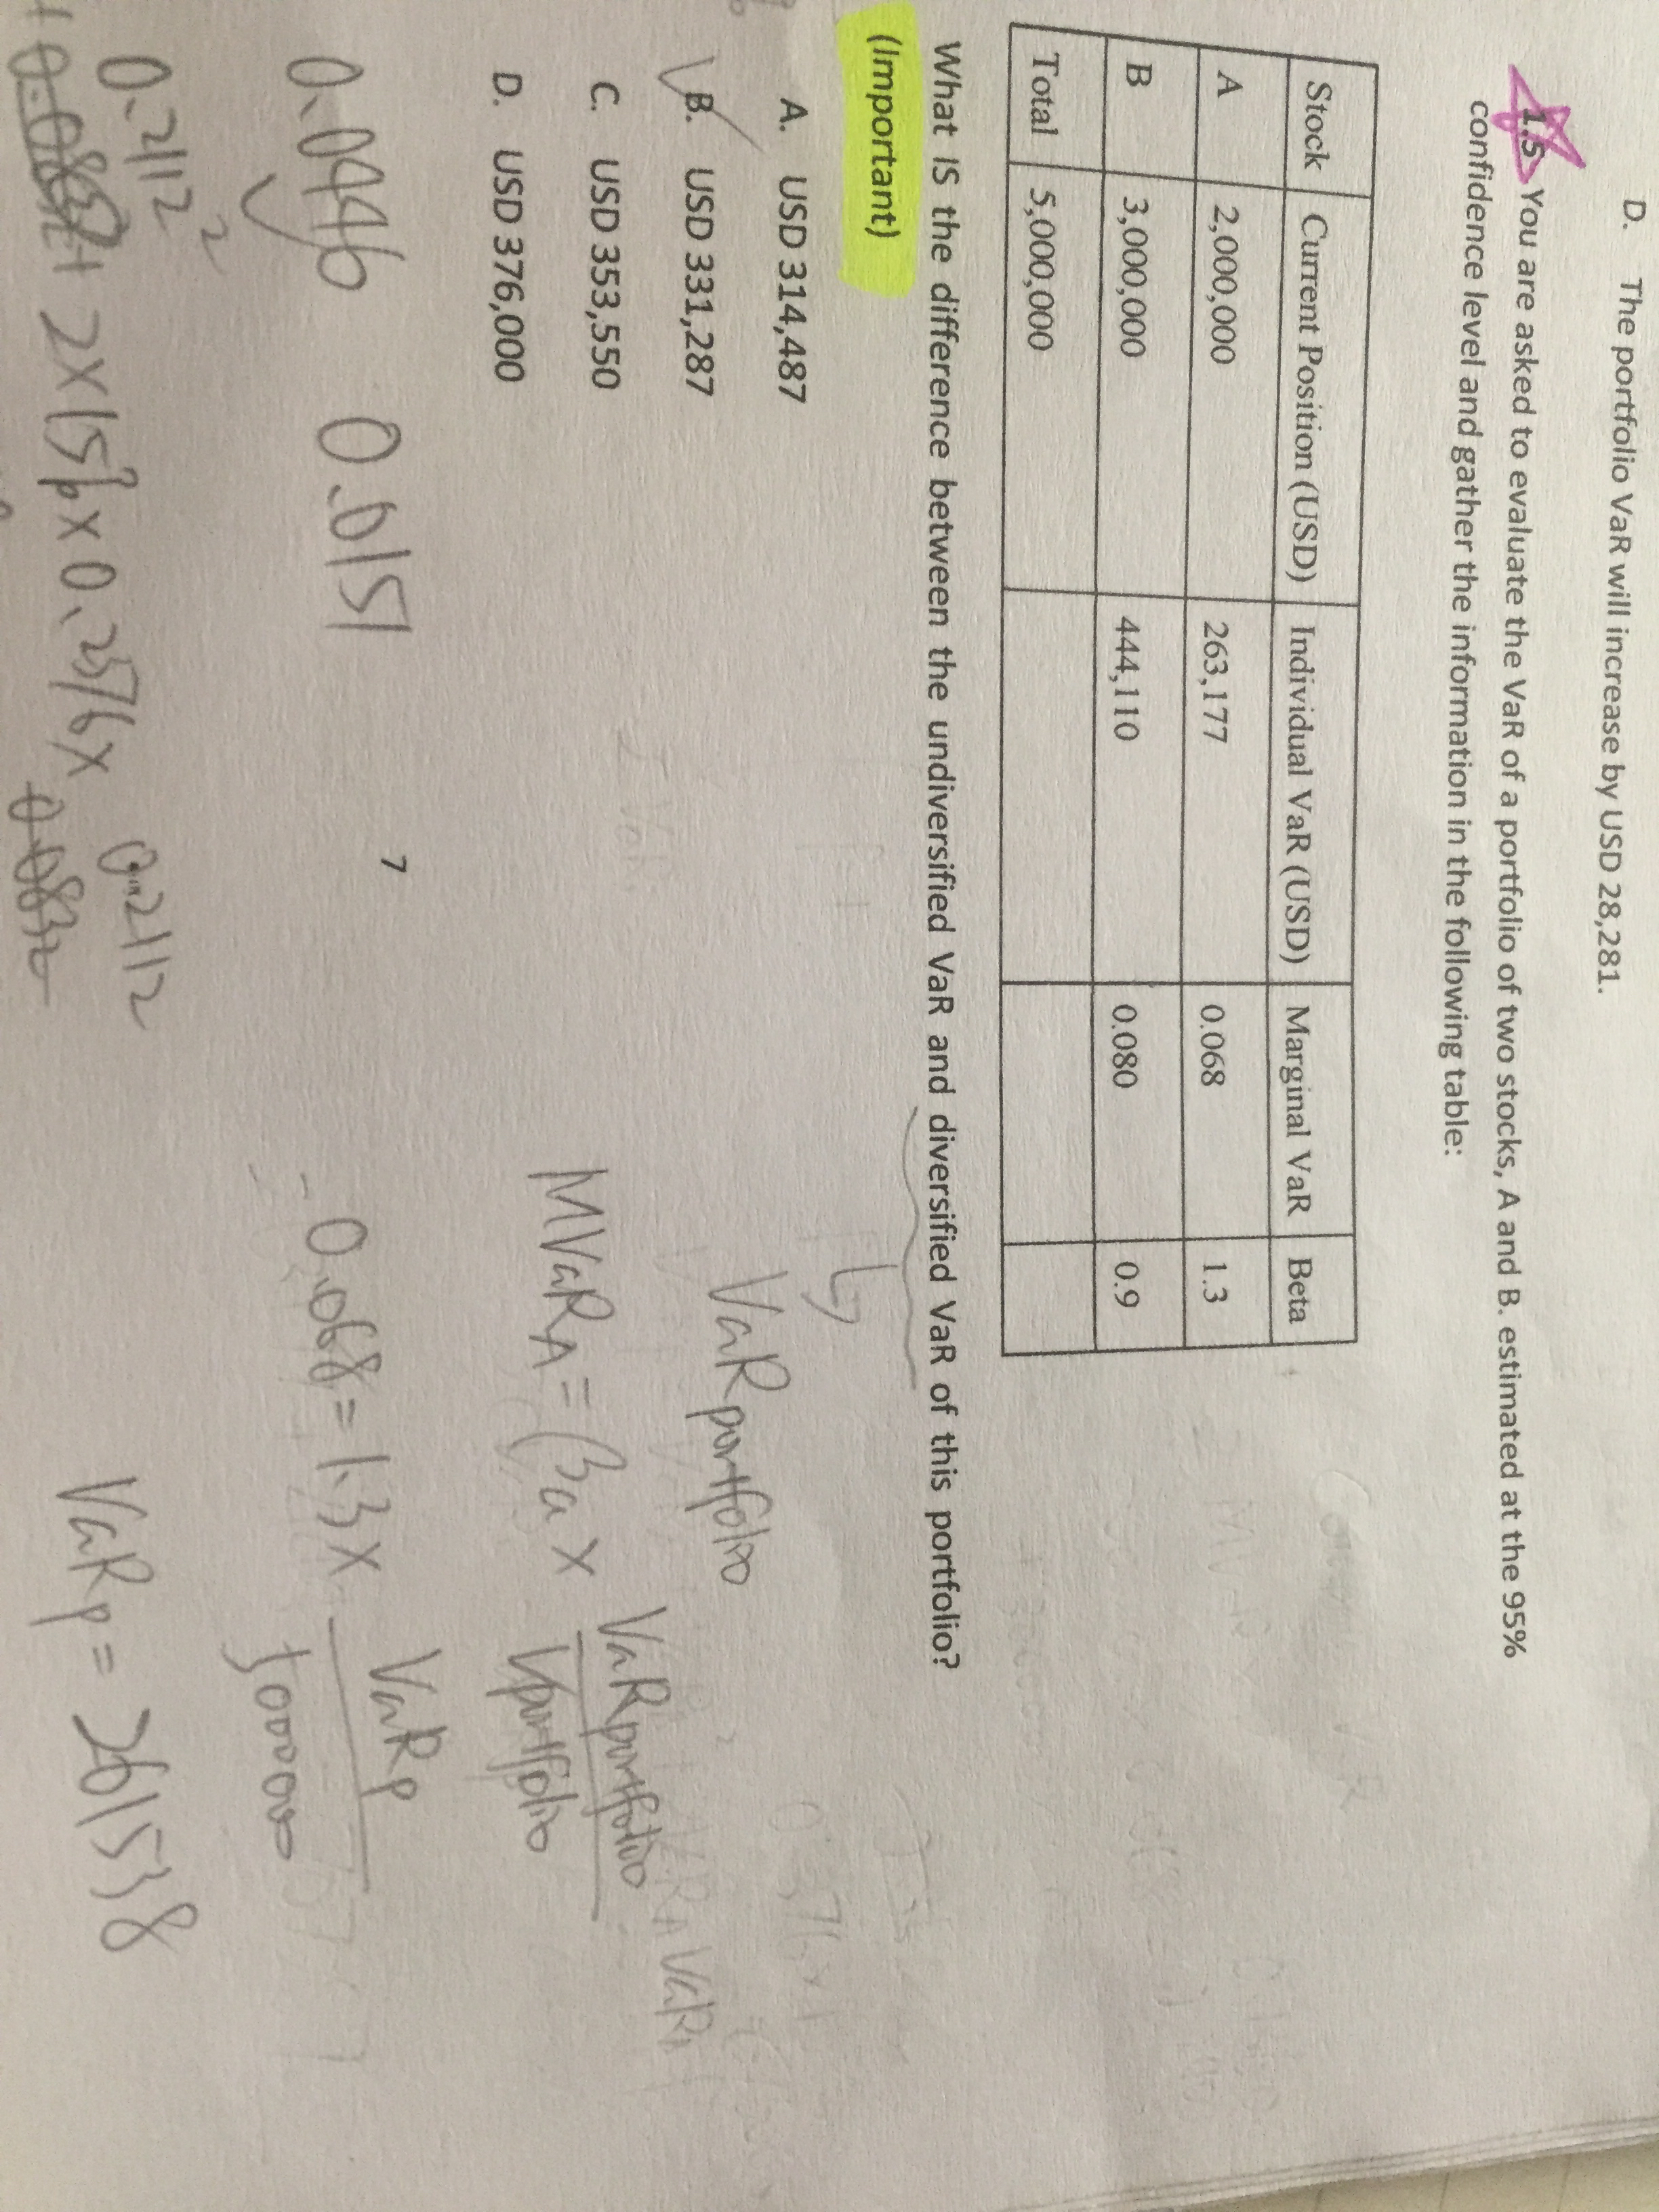 D. The portfolio VaR will increase by USD 28,281.
1.5 You are asked to evaluate the VaR of a portfolio of two stocks, A and B. estimated at the 95%
confidence level and gather the information in the following table:
Stock Current Position (USD) Individual VaR (USD) Marginal VaR Beta
A 2,000,000 263,177 0.068 1.3
B 3,000,000 444,110 0.080 0.9
Total 5,000,000
What IS the difference between the undiversified VaR and diversified VaR of this portfolio?
(Important)
A. USD 314,487
B. USD 331,287
C. USD 353,550
D. USD 376,000
VaR portfolio
MVaR A = βa × VaR portfolio
V portfolio
0.068 = 1.3 × VaR p
5000000
VaR p = 261538
0.0446 0.0151
7
0.2112² 0.2112
2×15%×0.2376×